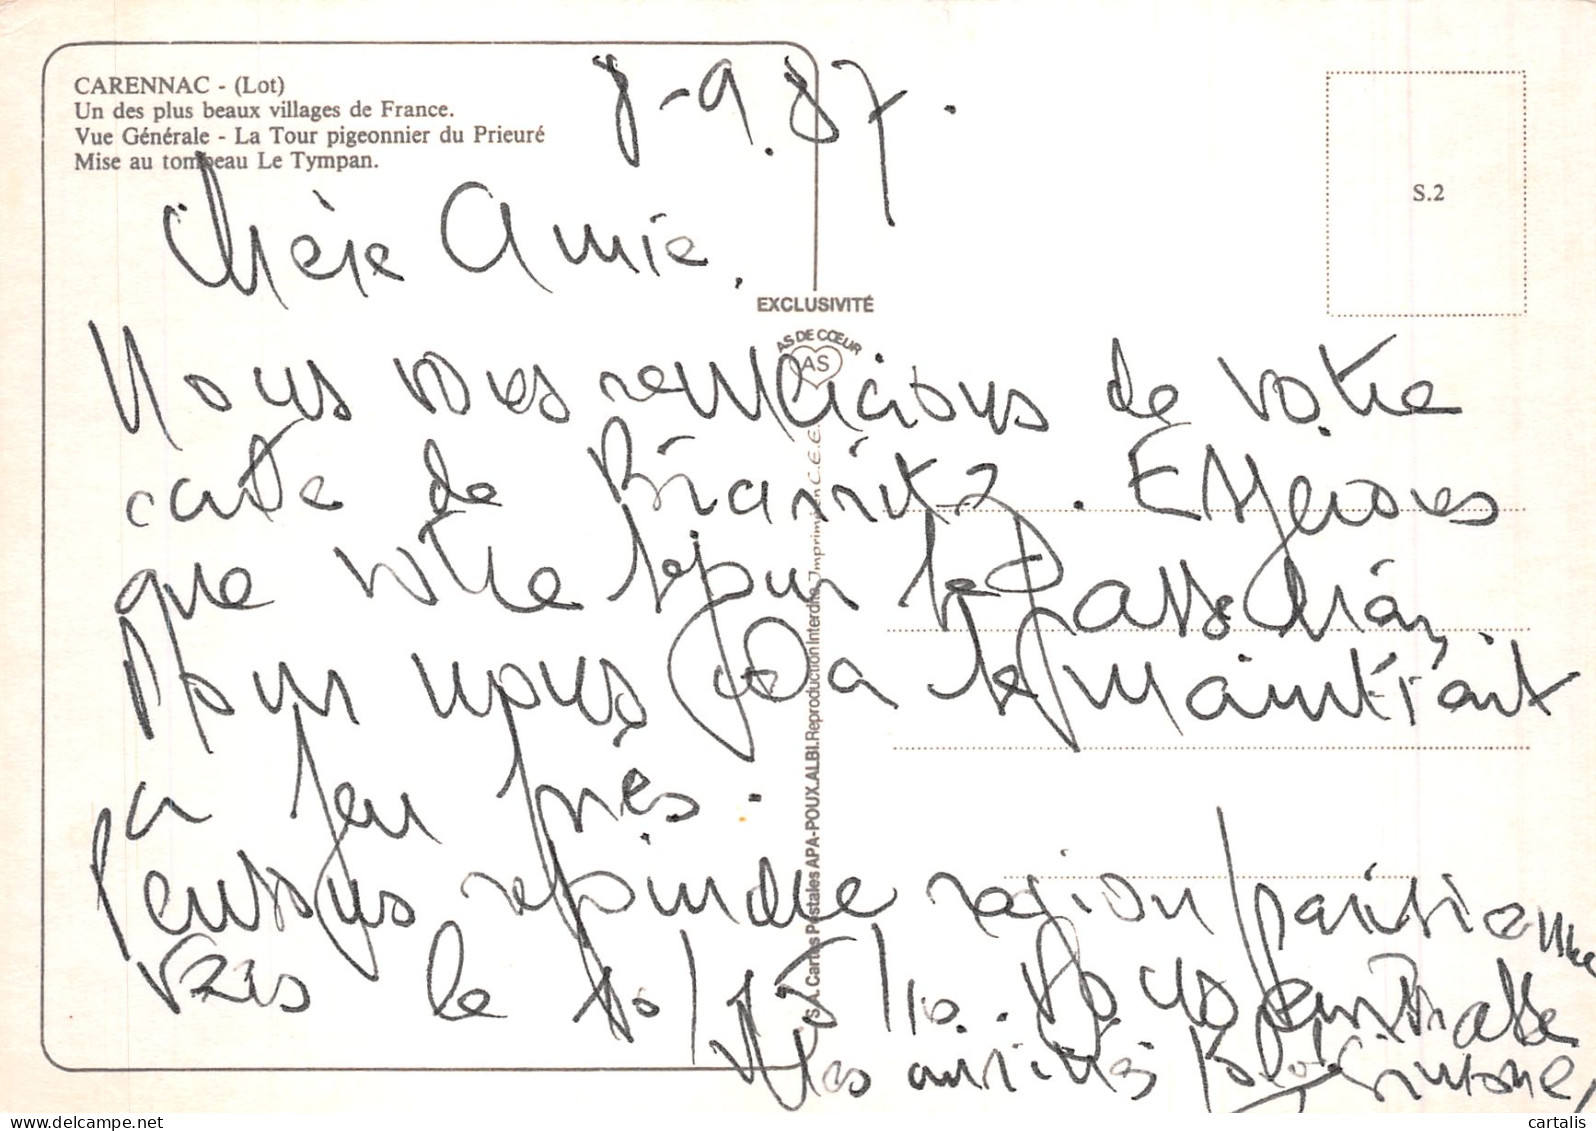 CARENNAC - (Lot)
Un des plus beaux villages de France.
Vue Générale - La Tour pigeonnier du Prieuré
Mise au tombeau Le Tympan.
8-9.87.
S.2
Chère Amie.
EXCLUSIVITÉ
AS DE CŒUR
AS
Nous vous remercions de votre
carte de Biarritz. Espérons
que votre séjour se passe bien,
Pour nous ça se maintient
à peu près.
Pensons rejoindre région parisienne
vers le 10/15/10.
Mes amitiés
S.A. Cartes Postales APA-POUX.ALBI. Reproduction Interdite Imprimé en C.E.E.
cartalis